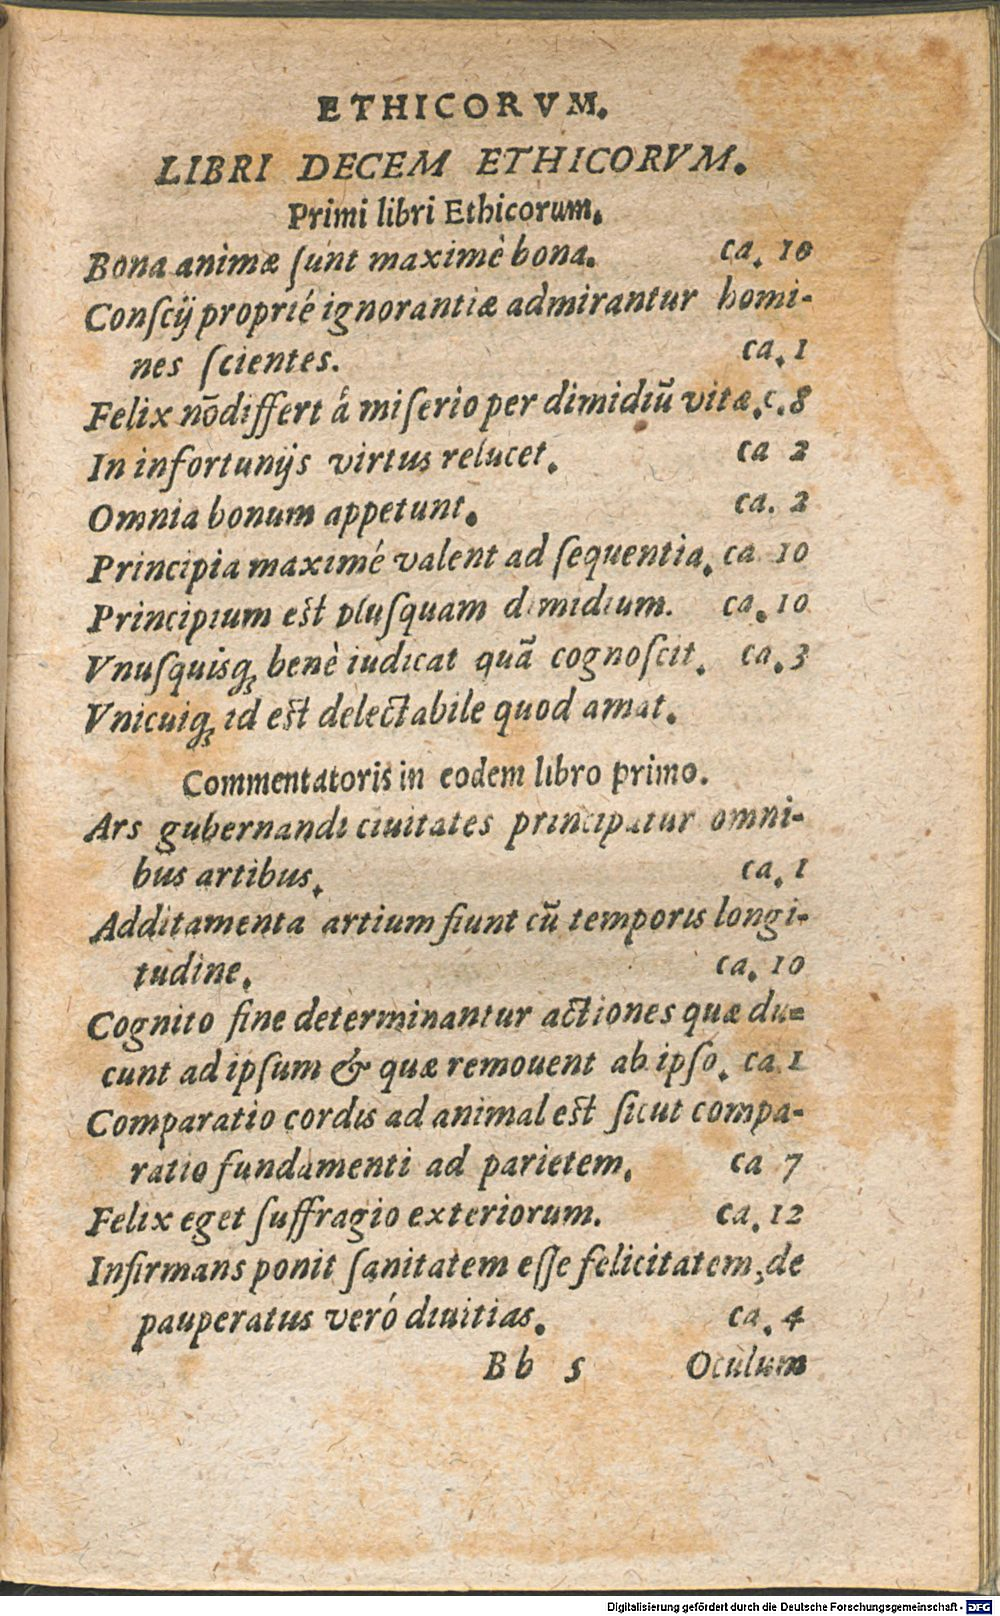 ETHICORVM.
LIBRI DECEM ETHICORVM.
Primi libri Ethicorum.
Bona animæ ſunt maximè bona. ca. 10
Conſcij proprié ignorantiæ admirantur homi-
nes ſcientes. ca. 1
Felix nōdiffert á miſerio per dimidiū vitæ. c. 8
In infortunijs virtus relucet. ca 2
Omnia bonum appetunt. ca. 2
Principia maximé valent ad ſequentia. ca 10
Principium est pluſquam dimidium. ca. 10
Vnuſquisq; benè iudicat quā cognoſcit. ca. 3
Vnicuiq; id est delectabile quod amat.
Commentatoris in eodem libro primo.
Ars gubernandi ciuitates principatur omni-
bus artibus. ca. 1
Additamenta artium fiunt cū temporis longi-
tudine. ca. 10
Cognito fine determinantur actiones quæ du=
cunt ad ipſum & quæ remouent ab ipſo. ca. 1
Comparatio cordis ad animal est ſicut compa-
ratio fundamenti ad parietem. ca 7
Felix eget ſuffragio exteriorum. ca. 12
Infirmans ponit ſanitatem eſſe felicitatem, de
pauperatus veró diuitias. ca. 4
Bb s Oculum
Digitalisierung gefördert durch die Deutsche Forschungsgemeinschaft - DFG